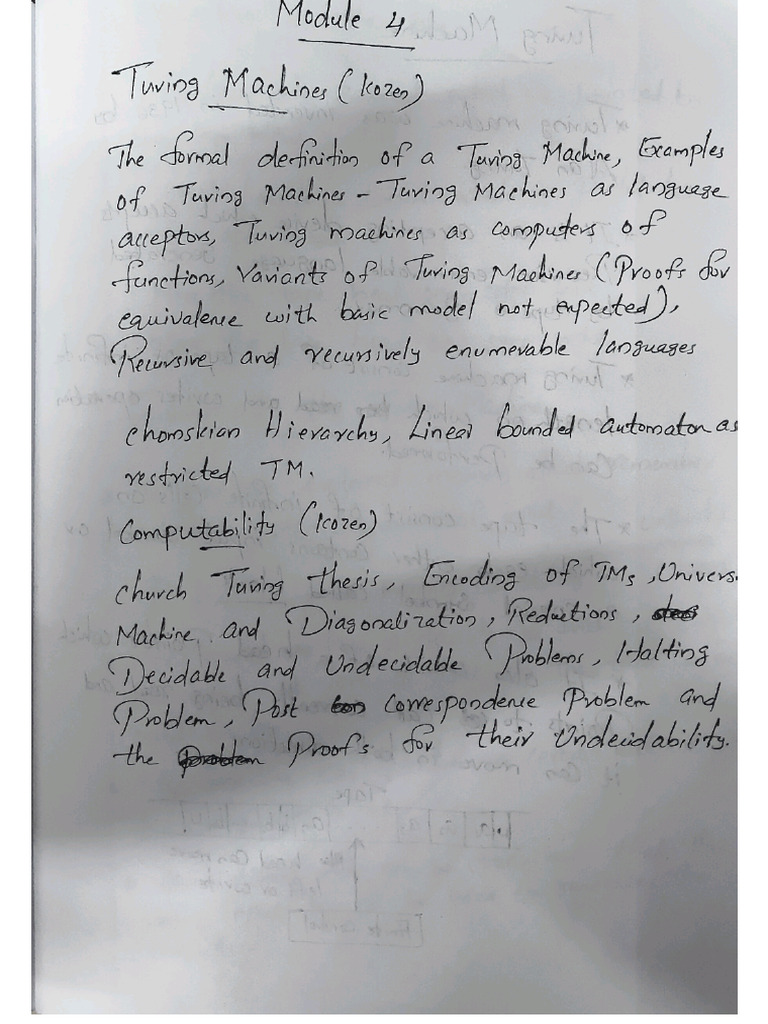 Module 4
Turing Machines (Kozen)
The formal definition of a Turing Machine, Examples
of Turing Machines - Turing Machines as language
acceptors, Turing machines as computers of
functions, Variants of Turing Machines (Proofs for
equivalence with basic model not expected),
Recursive and recursively enumerable languages
chomskian Hierarchy, Linear bounded automaton as
restricted TM.
Computability (Kozen)
church Turing thesis, Encoding of TMs, Univers
Machine and Diagonalization, Reductions,
Decidable and Undecidable Problems, Halting
Problem, Post correspondence Problem and
the Proofs for their Undecidability.